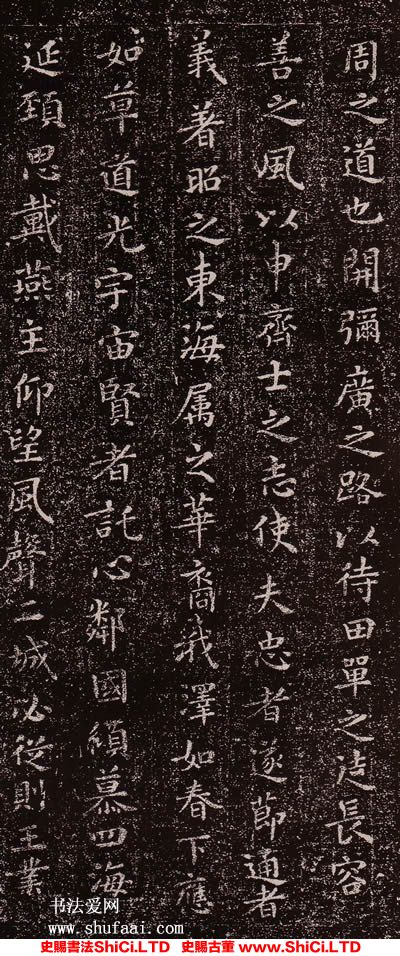 周之道也開彌廣之路以待田單之徒長容
善之風以申齊士之志使夫忠者遂節通者
義著昭之東海属之華裔我澤如春下應
如草道光宇宙賢者託心鄰國傾慕四海
延頚思戴燕主仰望風聲二城必從則王業
书法爱网
www.shufaai.com
史賜書法ShiCi.LTD 史賜古董 www.ShiCi.LTD